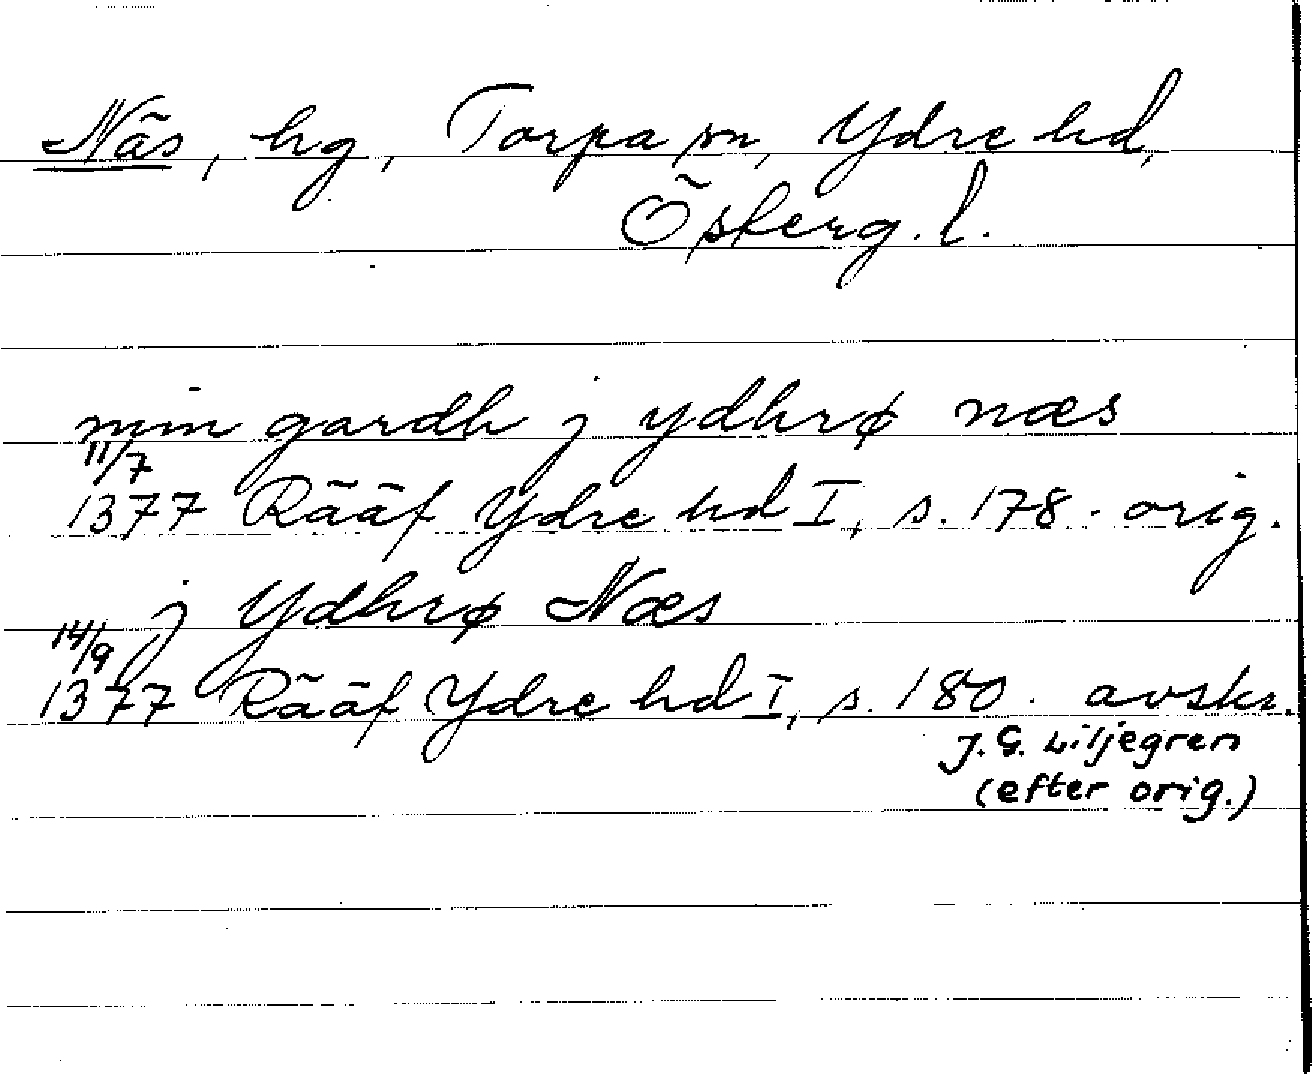 Näs, hg, Torpa sn, Ydre hd,
Österg. l.
min gardh j ydhrø næs
11/7
1377 Rääf Ydre hd I, s. 178. orig.
j Ydhrø Næs
14/9
1377 Rääf Ydre hd I, s. 180. avskr.
J. G. Liljegren
(efter orig.)